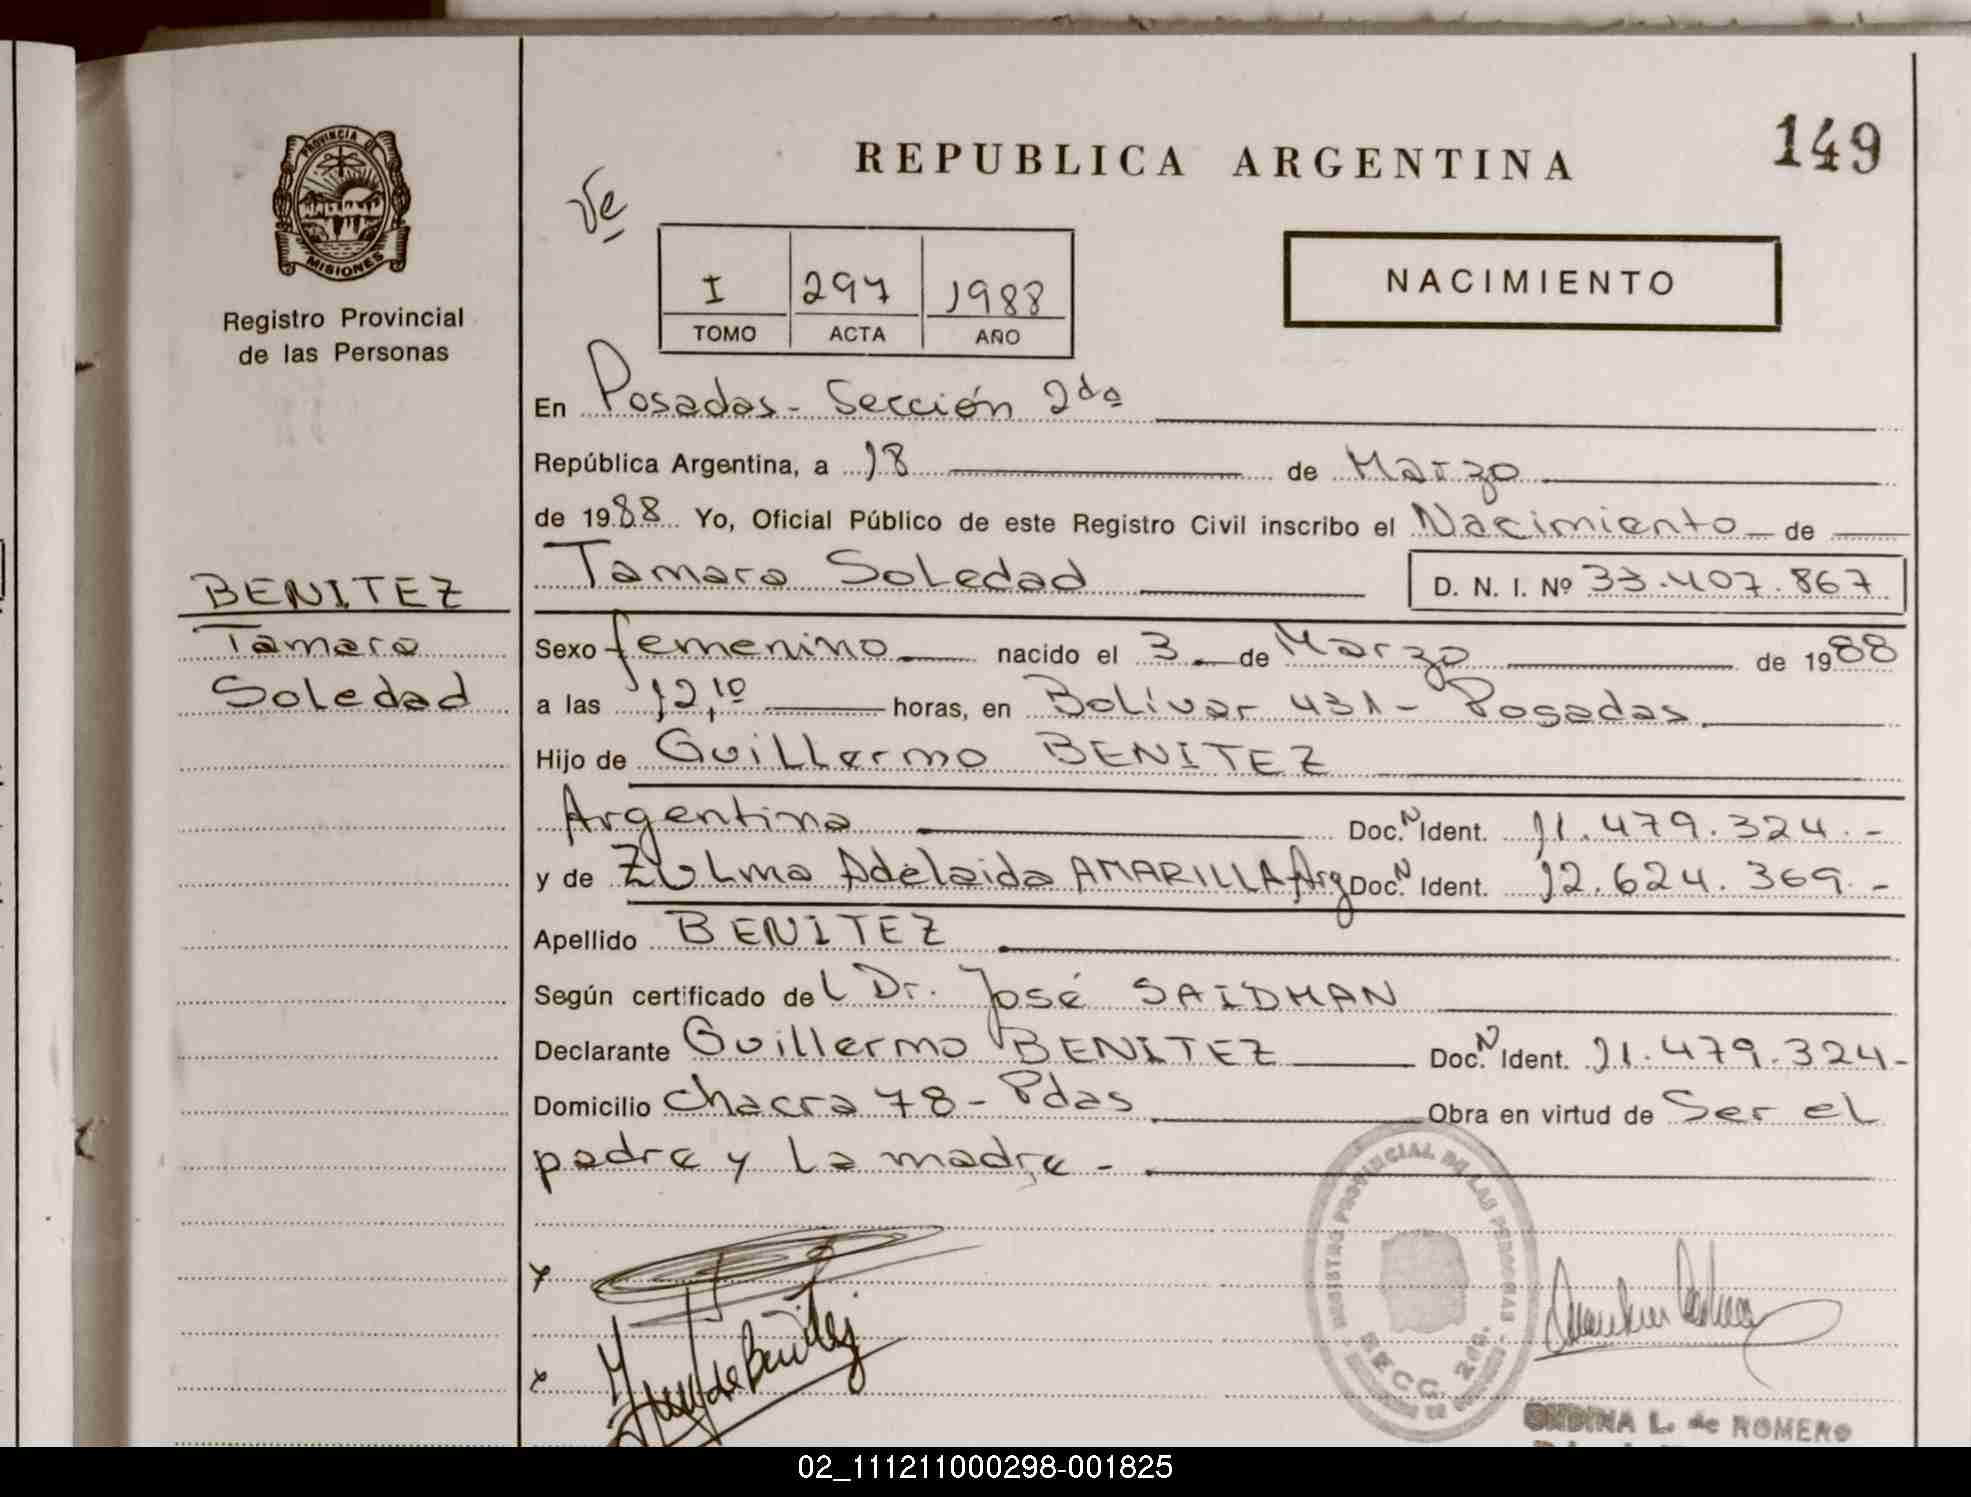 PROVINCIA D
MISIONES
Registro Provincial
de las Personas
BENITEZ
Tamara
Soledad
REPUBLICA ARGENTINA
149
I 297 1988
TOMO ACTA AÑO
NACIMIENTO
En Posadas - Sección 2da
República Argentina, a 18 de Marzo
de 1988 Yo, Oficial Público de este Registro Civil inscribo el Nacimiento de
Tamara Soledad D. N. I. Nº 33.407.867
Sexo femenino nacido el 3 de Marzo de 1988
a las 12,10 horas, en Bolívar 431 - Posadas
Hijo de Guillermo BENITEZ
Argentina Doc. N Ident. 11.479.324.-
y de Zulma Adelaida AMARILLA Arg Doc. N Ident. 12.624.369.-
Apellido BENITEZ
Según certificado del Dr. José SAIDMAN
Declarante Guillermo BENITEZ Doc. N Ident. 11.479.324-
Domicilio chacra 78 - Pdas Obra en virtud de Ser el
padre y La madre -
x
x
de Benitez
REGISTRO PROVINCIAL DE LAS PERSONAS
SECC. 2da.
ONDINA L. de ROMERO
02_111211000298-001825